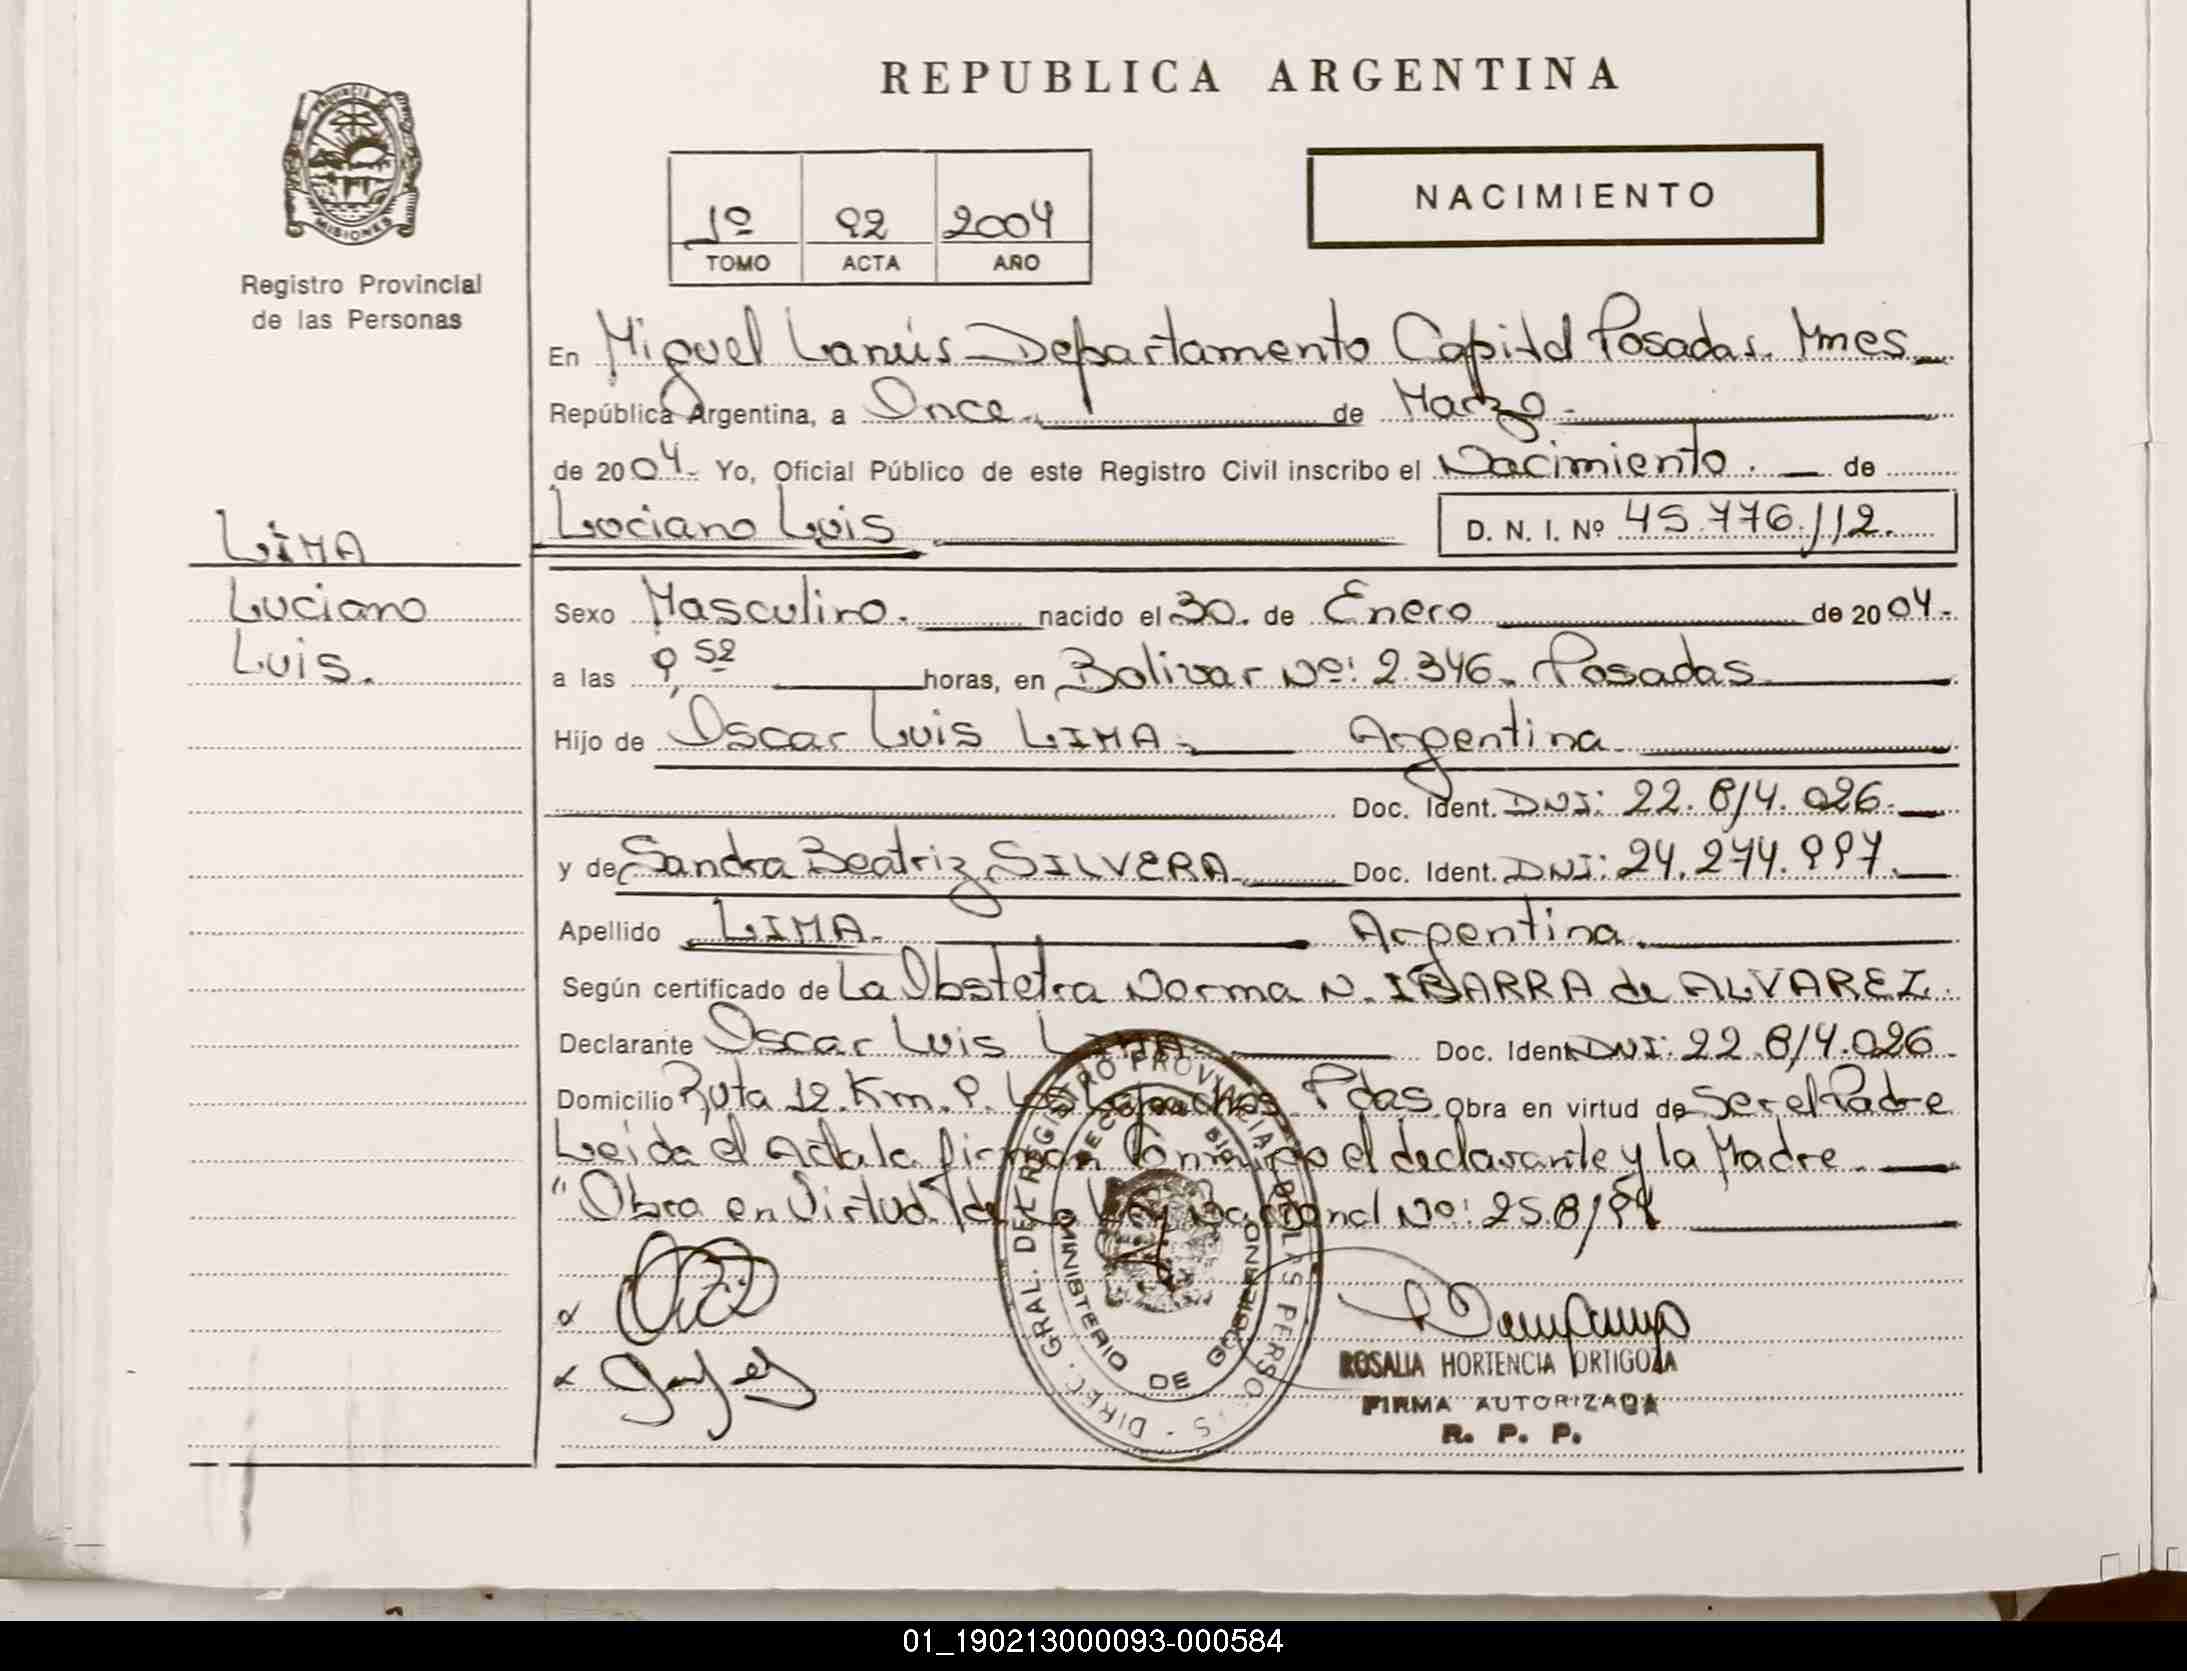 REPUBLICA ARGENTINA
PROVINCIA DE
MISIONES
Registro Provincial
de las Personas
NACIMIENTO
1º 92 2004
TOMO ACTA AÑO
En Miguel Lanús - Departamento Capital Posadas. Mnes
República Argentina, a Once. de Marzo.
de 2004. Yo, Oficial Público de este Registro Civil inscribo el Nacimiento. de
Luciano Luis D. N. I. Nº 45.776.112.
LIMA
Luciano
Luis.
Sexo Masculino. nacido el 30. de Enero de 2004.
a las 9,52 horas, en Bolivar Nº: 2.346. Posadas
Hijo de Oscar Luis LIMA. Argentina
Doc. Ident. DNI: 22.814.026.
y de Sandra Beatriz SILVERA Doc. Ident. DNI: 24.274.997.
Apellido LIMA. Argentina.
Según certificado de La Obstetra Norma N. IBARRA de ALVAREZ.
Declarante Oscar Luis LIMA Doc. Ident. DNI: 22.814.026
Domicilio Ruta 12. Km. 9. Los Lapachos. Pdas. Obra en virtud de Ser el Padre
Leida el Acta la firman Conmigo el declarante y la Madre.
"Obra en Virtud de la Ley Nacional Nº: 25.819
DIREC. GRAL. DEL REGISTRO PROVINCIAL DE LAS PERSONAS
MINISTERIO DE GOBIERNO
ROSALIA HORTENCIA ORTIGOZA
FIRMA AUTORIZADA
R. P. P.
01_190213000093-000584